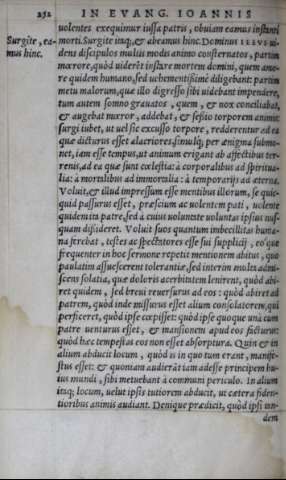 252 IN EVANG. IOANNIS
uolentes exequimur iussa patris, obuiam eamus instanti
Surgite, ea-
mus hinc.
morti. Surgite itaq;, & abeamus hinc. Dominus IESVS ui-
dens discipulos multis modis animo consternatos, partim
mœrore, quòd uiderēt instare mortem domini, quem amo-
re quidem humano, sed uehemētissimè diligebant: partim
metu malorum, quæ illo digresso sibi uidebant impendere,
tum autem somno grauatos, quem, & nox conciliabat,
& augebat mœror, addebat, & sessio torporem animis:
surgi iubet, ut uel sic excusso torpore, redderentur ad ea
quæ dicturus esset alacriores, simulq; per ænigma submo-
net, iam esse tempus, ut animum erigant ab affectibus ter-
renis, ad ea quæ sunt cœlestia: à corporalibus ad spiritua-
lia: à mortalibus ad immortalia: à temporarijs ad æterna.
Voluit, & illud impressum esse mentibus illorum, se quic-
quid passurus esset, præscium ac uolentem pati, uolente
quidem ita patre, sed à cuius uoluntate uoluntas ipsius nus-
quam dissideret. Voluit suos quantum imbecillitas huma-
na ferebat, testes ac spectatores esse sui supplicij, eo'que
frequenter in hoc sermone repetit mentionem abitus, quo
paulatim assuescerent tolerantiæ, sed interim multa admi-
scens solatia, quæ doloris acerbitatem lenirent, quòd abi-
ret quidem, sed breui reuersurus ad eos: quòd abiret ad
patrem, quòd inde missurus esset alium consolatorem, qui
perficeret, quòd ipse cœpisset: quòd ipse quoque unà cum
patre uenturus esset, & mansionem apud eos facturus:
quòd hæc tempestas eos non esset absorptura. Quin & in
alium abducit locum, quòd is in quo tum erant, manife-
stus esset: & quoniam audierāt iam adesse principem hu-
ius mundi, sibi metuebant à communi periculo. In alium
itaq; locum, uelut ipsis tutiorem abducit, ut cætera fiden-
tioribus animis audiant. Denique prædicit, quòd ipsi ean-
dem